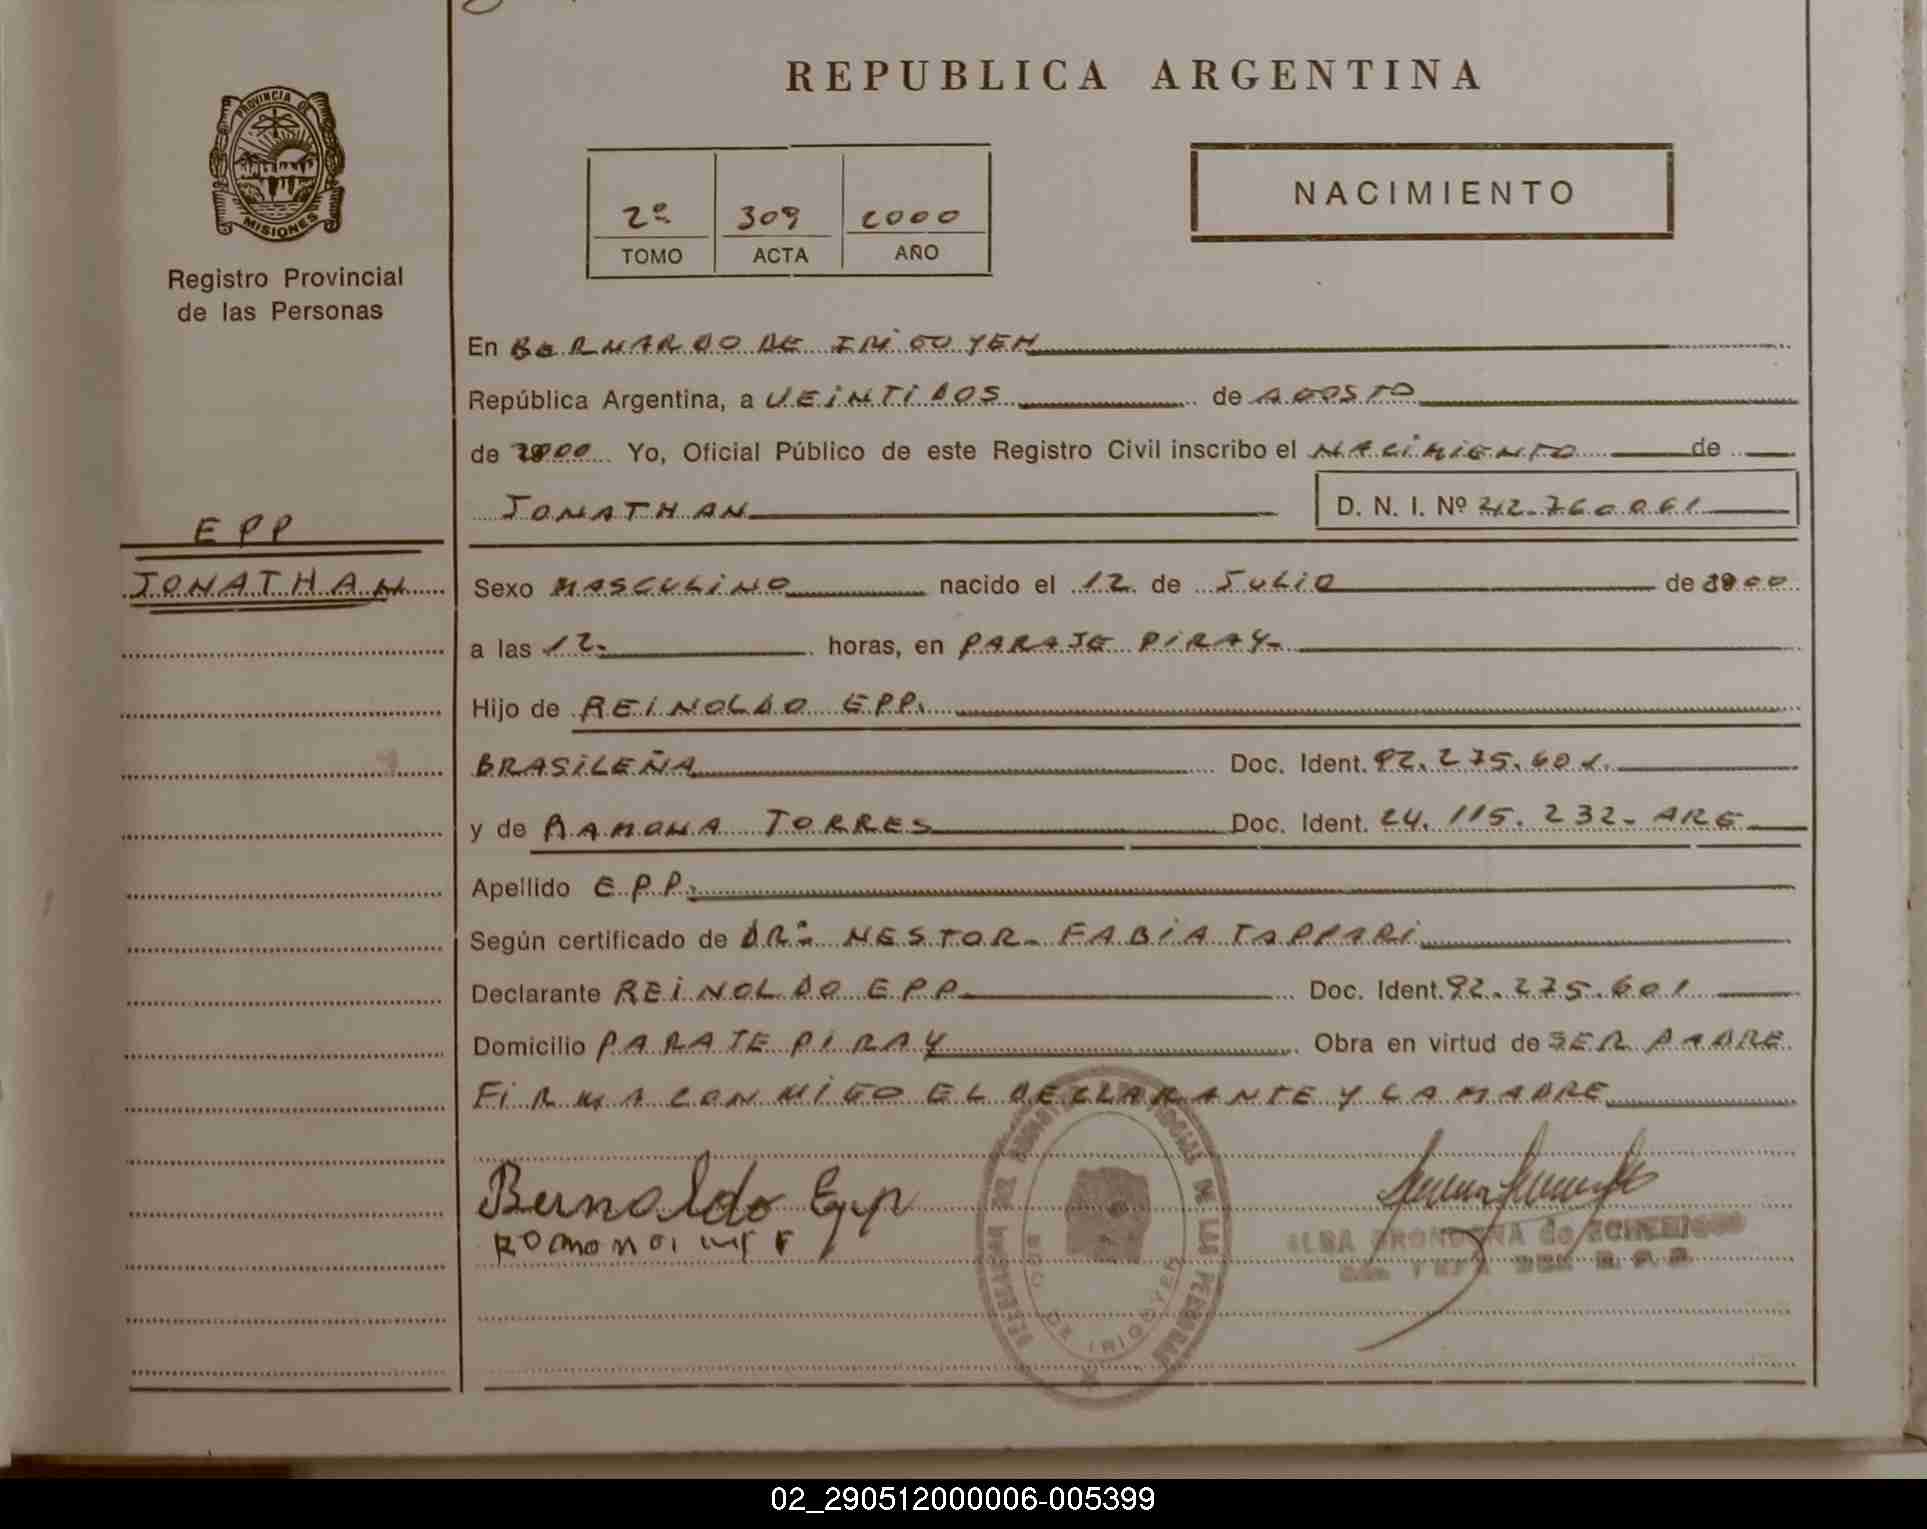 REPUBLICA ARGENTINA
PROVINCIA DE
MISIONES
Registro Provincial
de las Personas
2º 309 2000
TOMO ACTA AÑO
NACIMIENTO
En BERNARDO DE IRIGOYEN
República Argentina, a VEINTIDOS de AGOSTO
de 2000 Yo, Oficial Público de este Registro Civil inscribo el NACIMIENTO de
JONATHAN D. N. I. Nº 42.760.061
EPP
JONATHAN
Sexo MASCULINO nacido el 12 de JULIO de 2000
a las 12- horas, en PARAJE PIRAY-
Hijo de REINOLDO EPP.
BRASILEÑA Doc. Ident. 92.275.601.
y de RAMONA TORRES Doc. Ident. 24.115.232- ARG
Apellido EPP.
Según certificado de DR. NESTOR- FABIA
Declarante REINOLDO EPP Doc. Ident. 92.275.601
Domicilio PARAJE PIRAY Obra en virtud de SER PADRE
FIRMA CONMIGO EL DECLARANTE Y LA MADRE
BDO DE IRIGOYEN
02_290512000006-005399